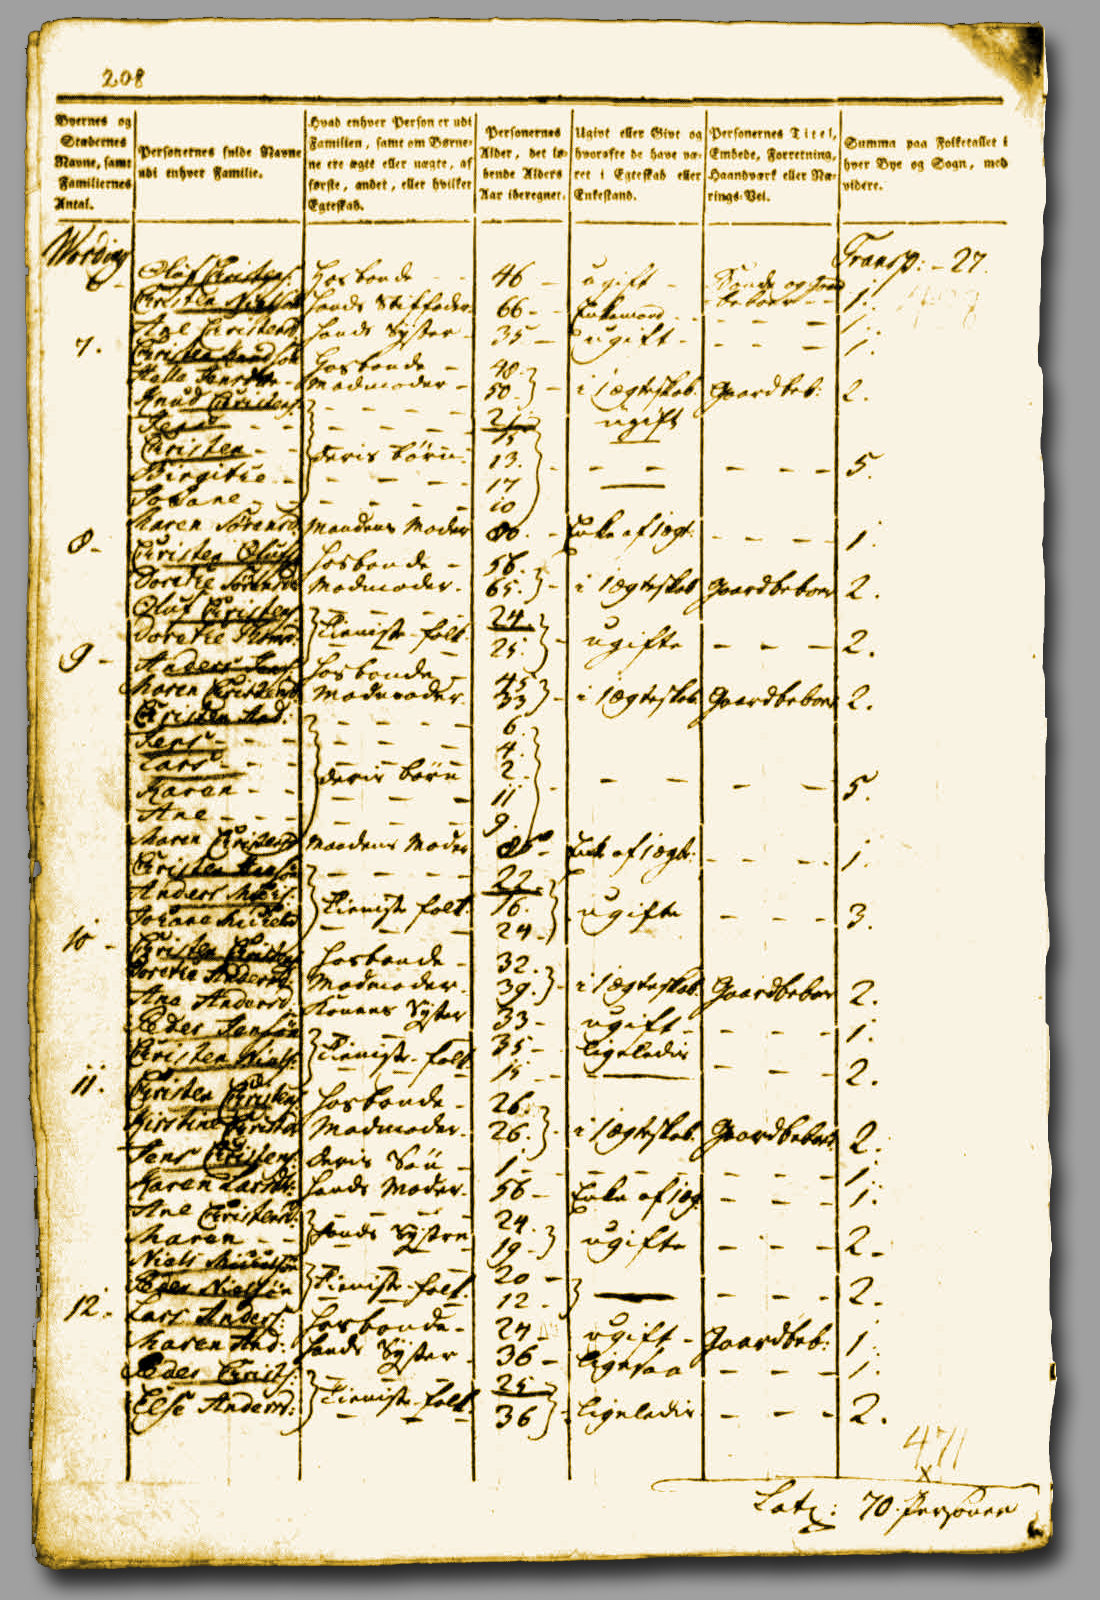 208
Byernes og Stedernes Navne, samt Familiernes Antal.
Personernes fulde Navne udi enhver Familie.
Hvad enhver Person er udi Familien, samt om Børnene ere ægte eller uægte, af første, andet, eller hvilket Egteskab.
Personernes Alder, det løbende Alders Aar iberegnet.
Ugivt eller Givt og hvorofte de have været i Egteskab eller Enkestand.
Personernes Titel, Embede, Forretning, Haandværk eller Nærings-Vei.
Summa paa Folketallet i hver Bye og Sogn, med videre.
Transp: - 27.
Oluf Christens: Hosbonde - - 46 - ugift - Bonde og
Christen Nielsøn hands Stiffader 66 - Enkemand - - beboer - - 1.
Ane Christensd: hands Syster - 35 - ugift - - - - 1.
7. Christen Knudsøn Hosbonde - 48.
Madmoder - 50. i 1 ægteskab. Gaardbeb: 2.
Knud Christens: - - - - 21. ugift
Jens - - - - - - 15
Christen - - deris børn 13. - - - - - 5.
Birgitte - - - - - 17
Johane - - - - - 10
Maren Sørensd: Mandens Moder 80. - Enke af 1 ægt: - - - 1.
8 - Christen Olufs: Hosbonde - 56.
Dorethe Sørensd: Madmoder. 65. - i 1 ægteskab Gaardbeboer 2.
Oluf Christens: Tieniste-folk 24.
Dorethe 25. - ugifte - - - 2.
9 - Anders Jens: Hosbonde 45
Maren Christensd: Madmoder. 33 - i 1 ægteskab. Gaardbeboer 2.
Christen And: - - - - 6.
Jens - - - - - - 4.
Lars - - - deris børn 2. - - - - 5.
Karen - - - - - 11
Ane - - - - - - 9.
Maren Christensd: Mandens Moder - Enke af 1 ægte: - - - 1.
Christen - - - - 22.
Anders Tieniste folk. 16. ugifte - - - 3.
24.
10 - Christen Hosbonde - 32.
Dorethe Andersd: Madmoder. 39. - i 1 ægteskab. Gaardbeboer 2.
Ane Andersd: Konens Syster 33 - ugift - - - - 1.
Peder Jensøn Tieniste-folk 35 - ligeledis
Christen Niels: 15 - - - - 2.
11. Christen Christens: Hosbonde - 26.
Kirstine Madmoder. 26. - i 1 ægteskab. Gaardbeboer. 2.
Jens Christens: deris Søn - 1. - - - - - - 1.
Karen Larsdt: hands Moder. 56 - Enke af 1 æg. - - - 1.
Ane Christensd: hands Systre 24.
Maren - - 19 - ugifte - - - 2 -
Niels Tieniste-folk. 20 -
Peder Nielsøn 12 - - - - 2.
12 - Lars Anders: Hosbonde - 24 - ugift - Gaardbeb: 1.
Maren And: hands Syster - 36 - ligesaa - - - 1.
Peder Christs: Tieniste-folk 25
Else Andersd: 36 - ligeledis - - - 2.
471
x
Latz: 70. Personer